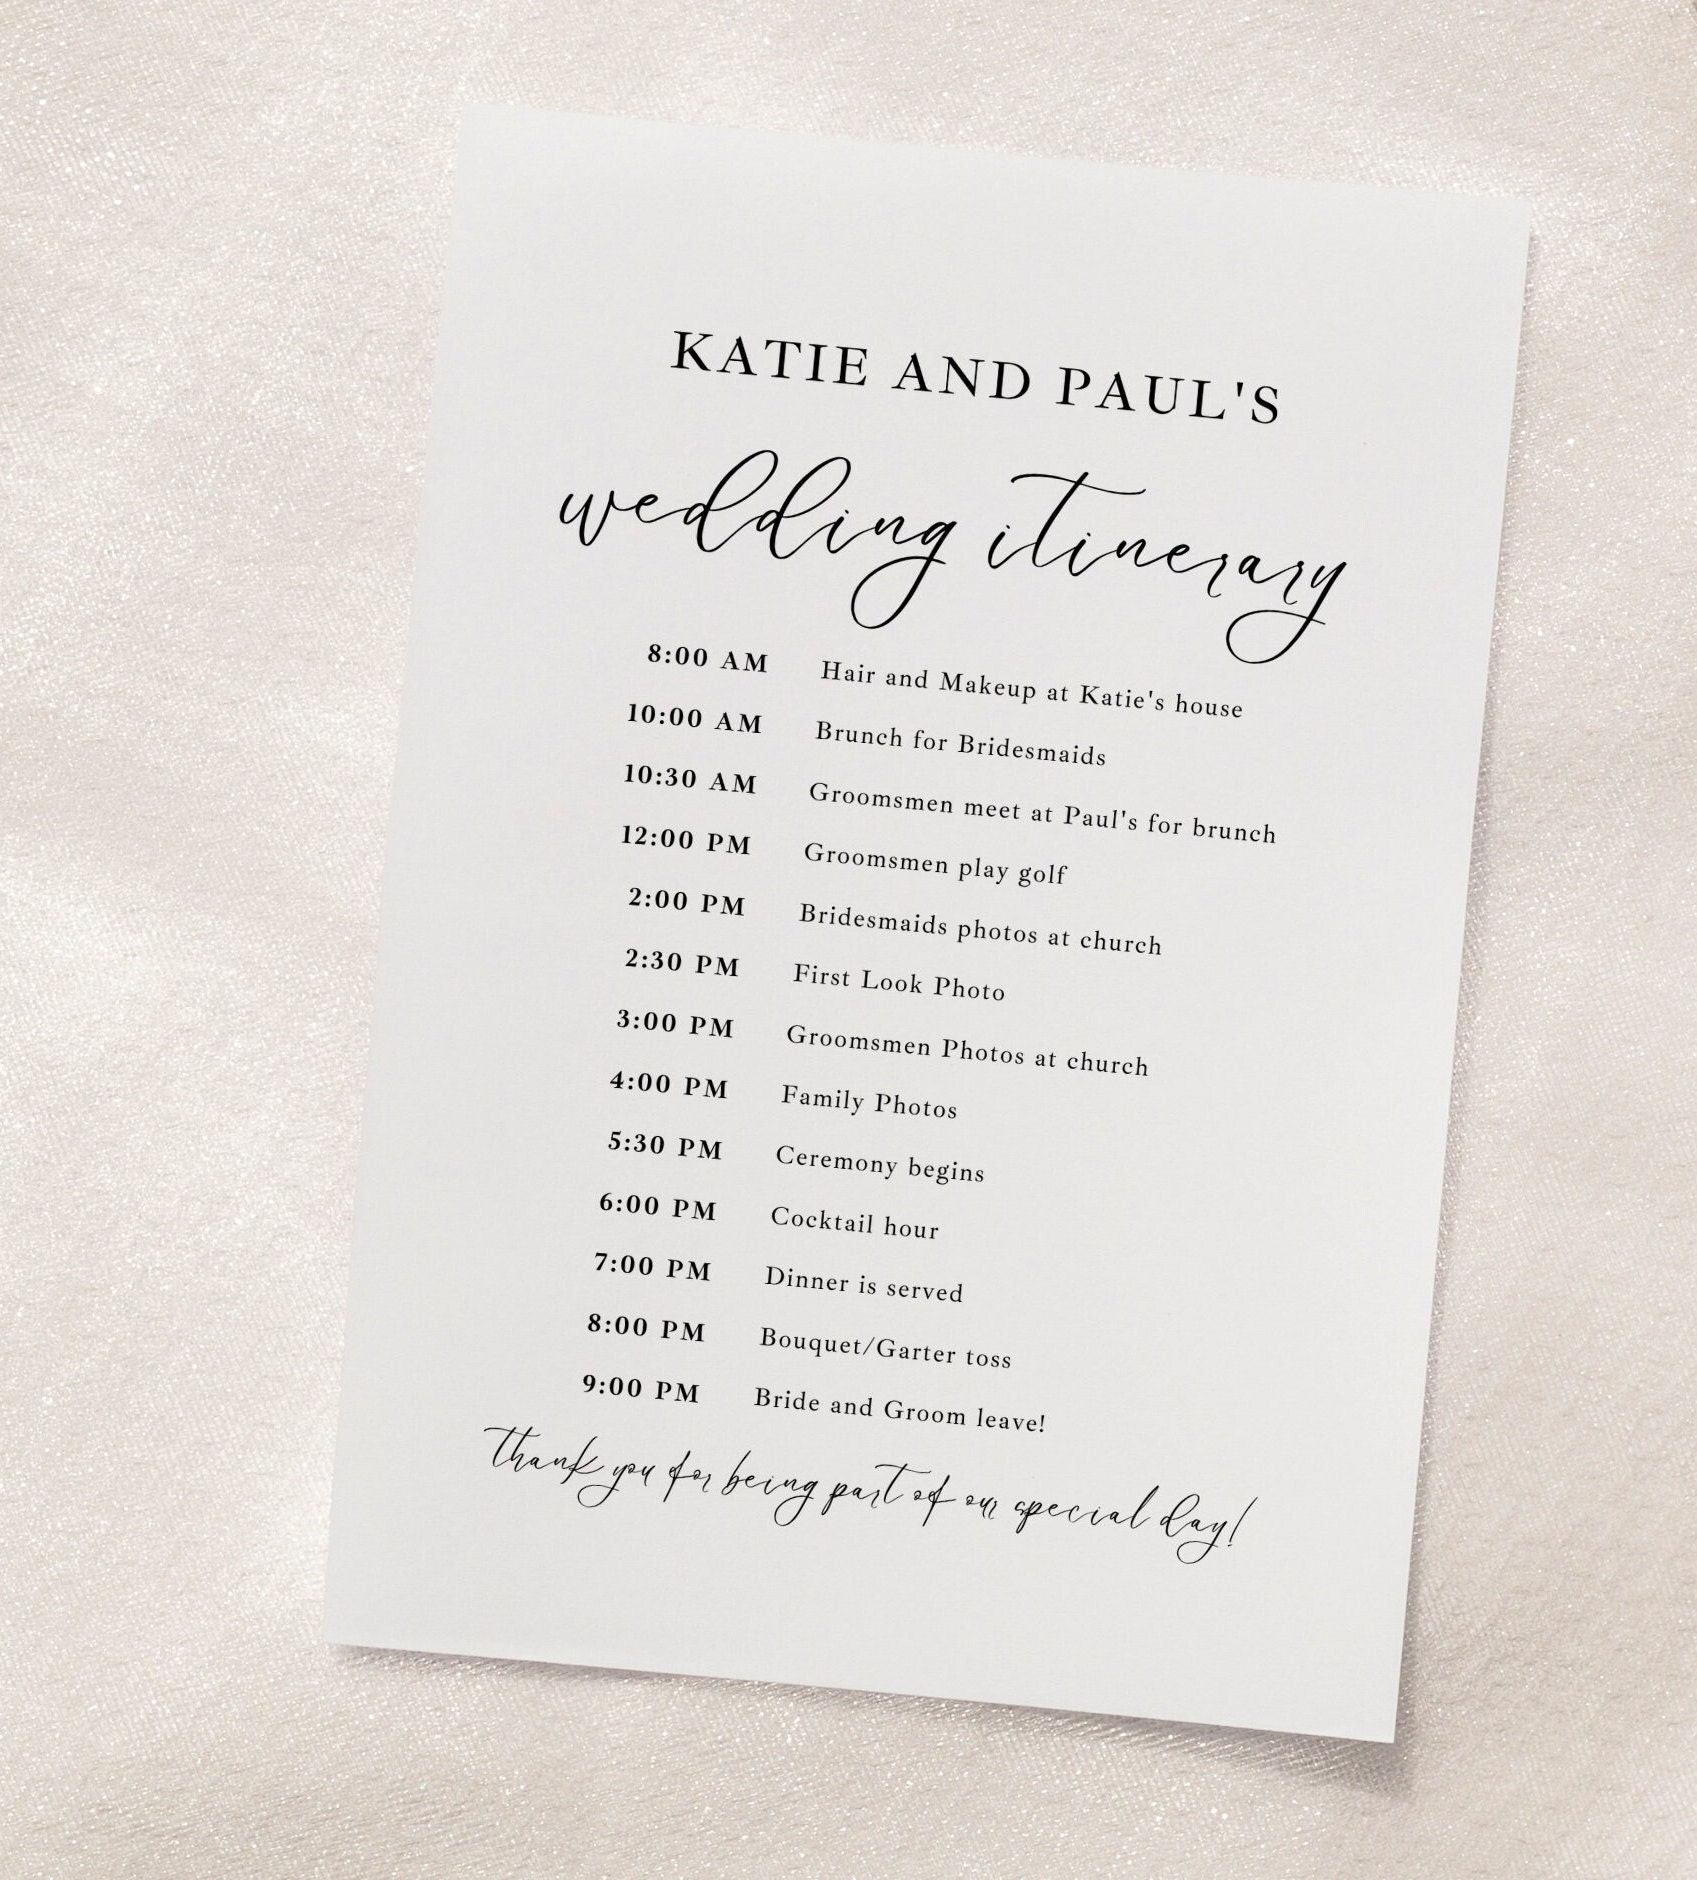 KATIE AND PAUL'S
wedding itinerary
8:00 AM Hair and Makeup at Katie's house
10:00 AM Brunch for Bridesmaids
10:30 AM Groomsmen meet at Paul's for brunch
12:00 PM Groomsmen play golf
2:00 PM Bridesmaids photos at church
2:30 PM First Look Photo
3:00 PM Groomsmen Photos at church
4:00 PM Family Photos
5:30 PM Ceremony begins
6:00 PM Cocktail hour
7:00 PM Dinner is served
8:00 PM Bouquet/Garter toss
9:00 PM Bride and Groom leave!
thank you for being part of our special day!